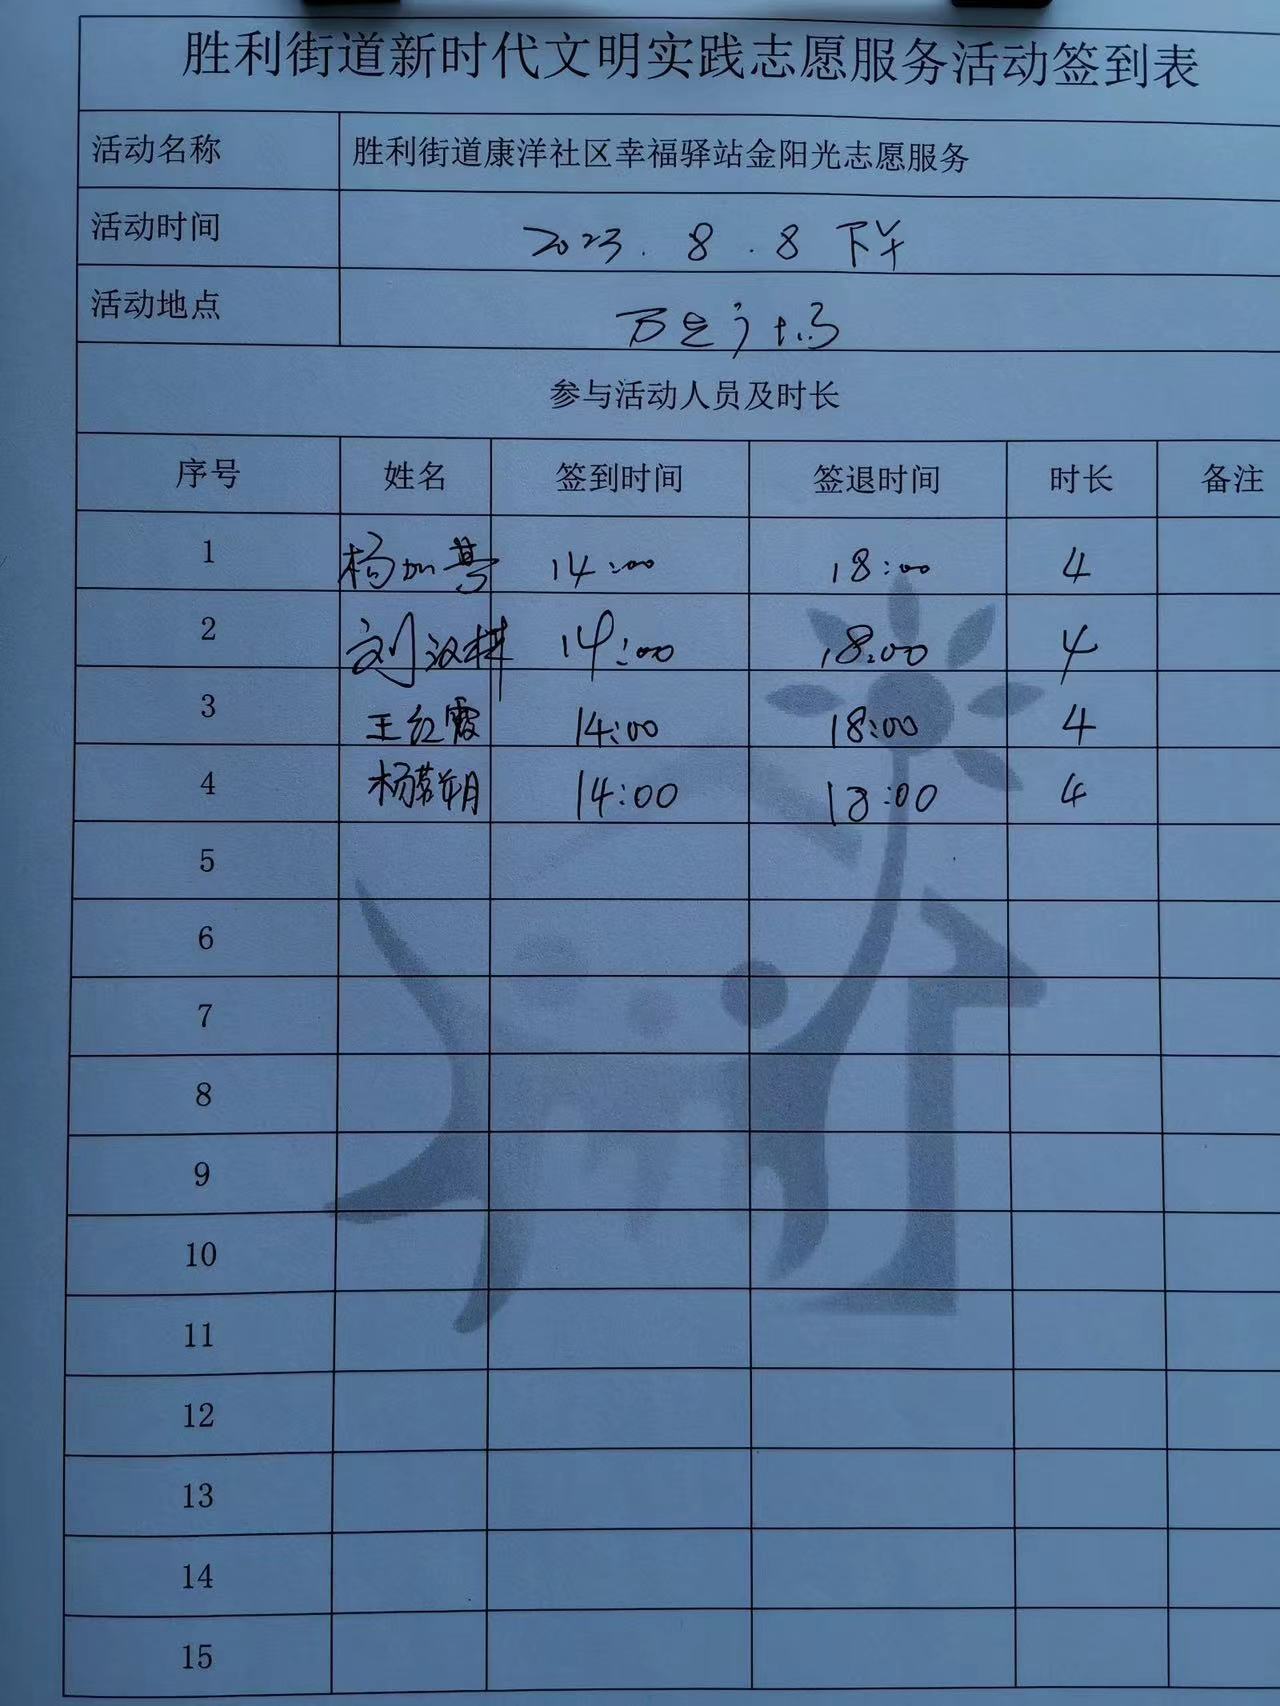 胜利街道新时代文明实践志愿服务活动签到表
活动名称 胜利街道康洋社区幸福驿站金阳光志愿服务
活动时间 2023.8.8 下午
活动地点 万达广场
参与活动人员及时长
序号 姓名 签到时间 签退时间 时长 备注
1 杨加 14:00 18:00 4
2 刘汉 14:00 18:00 4
3 王红霞 14:00 18:00 4
4 杨 14:00 18:00 4
5
6
7
8
9
10
11
12
13
14
15